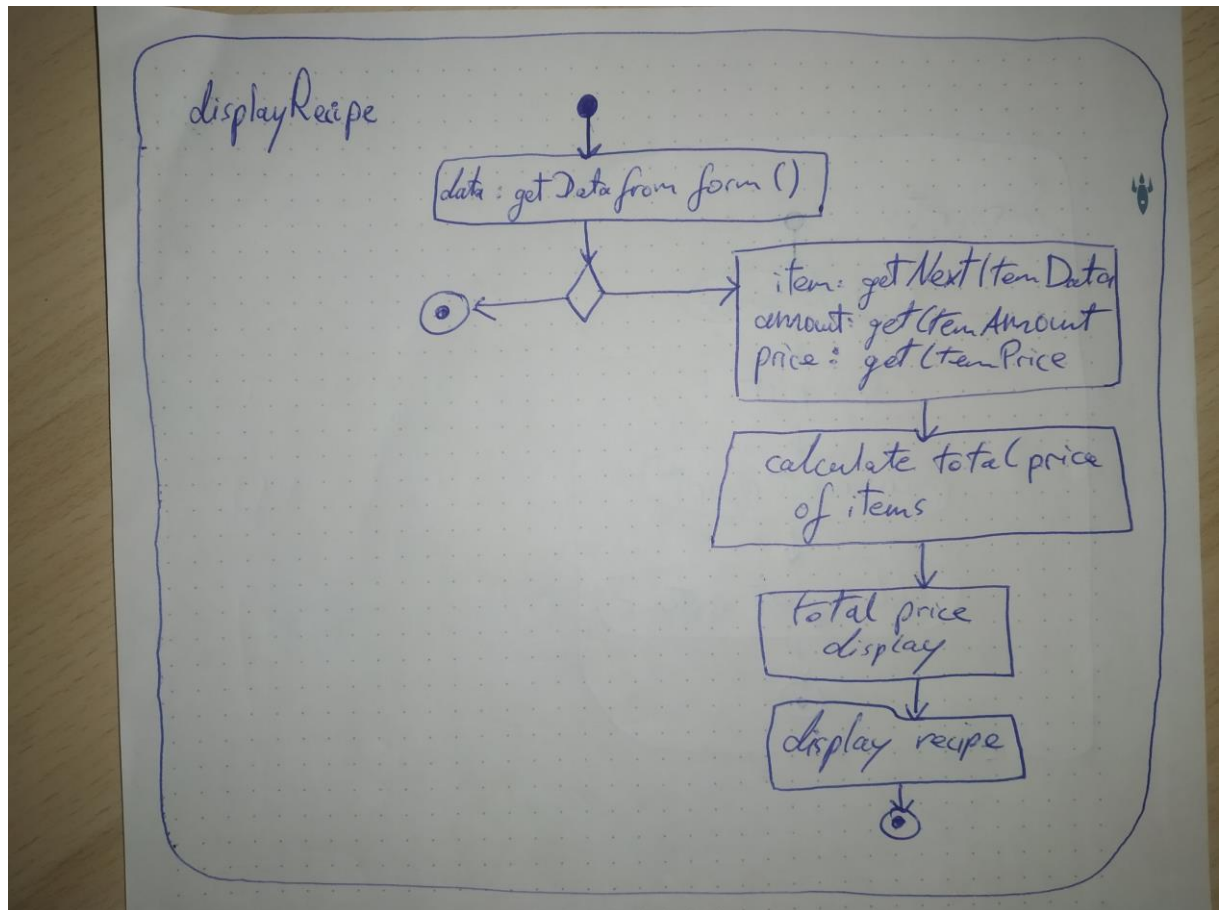 displayRecipe
data: getDatafrom form ()
item: getNextItemData
amount: getItemAmount
price: getItemPrice
calculate total price
of items
total price
display
display recipe